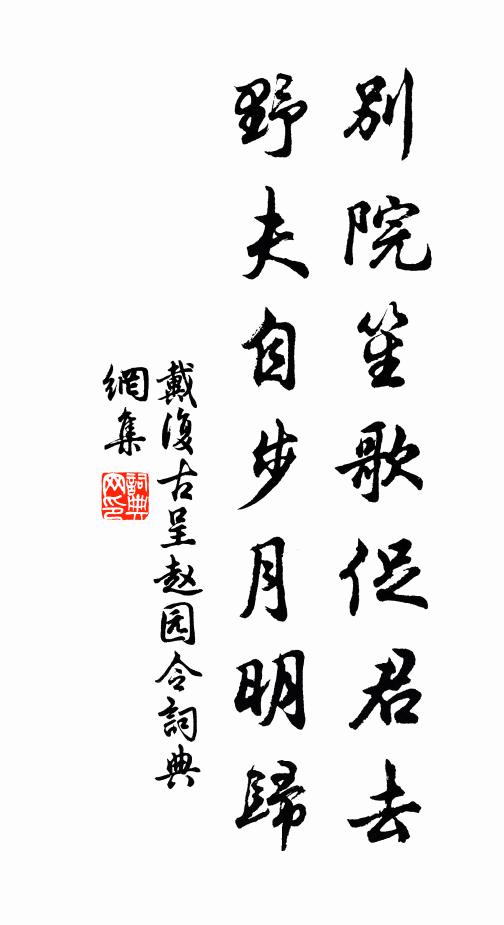 別院笙歌促君去
野夫自步月明歸
戴復古呈赵园令詞典
網集
詞典
网印